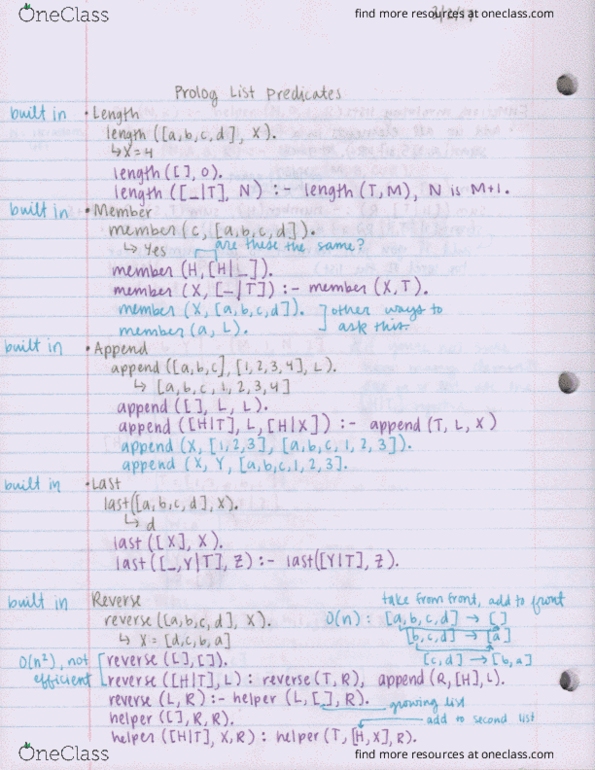 OneClass
find more resources at oneclass.com
Prolog List Predicates
built in • Length
length ([a,b,c,d], X).
↳ X = 4
length ([ ], 0).
length ([_|T], N) :- length (T,M), N is M+1.
built in • Member
member (c, [a,b,c,d]).
↳ Yes are these the same?
member (H, [H|_]).
member (X, [_|T]) :- member (X,T).
member (X, [a,b,c,d]). other ways to
member (a, L). ask this
built in • Append
append ([a,b,c], [1,2,3,4], L).
↳ [a,b,c,1,2,3,4]
append ([ ], L, L).
append ([H|T], L, [H|X]) :- append (T, L, X)
append (X, [1,2,3], [a,b,c,1,2,3]).
append (X, Y, [a,b,c,1,2,3].
built in • Last
last([a,b,c,d], X).
↳ d
last ([X], X).
last ([_,Y|T], Z) :- last([Y|T], Z).
built in Reverse take from front, add to front
reverse ([a,b,c,d], X). O(n) : [a,b,c,d] → [ ]
↳ X = [d,c,b,a] [b,c,d] → [a]
[c,d] → [b,a]
O(n²), not reverse ([ ], [ ]).
efficient reverse ([H|T], L) : reverse (T, R), append (R, [H], L).
reverse (L, R) :- helper (L, [ ], R). growing list
helper ([ ], R, R). add to second list
helper ([H|T], X, R) : helper (T, [H,X], R).
OneClass
find more resources at oneclass.com